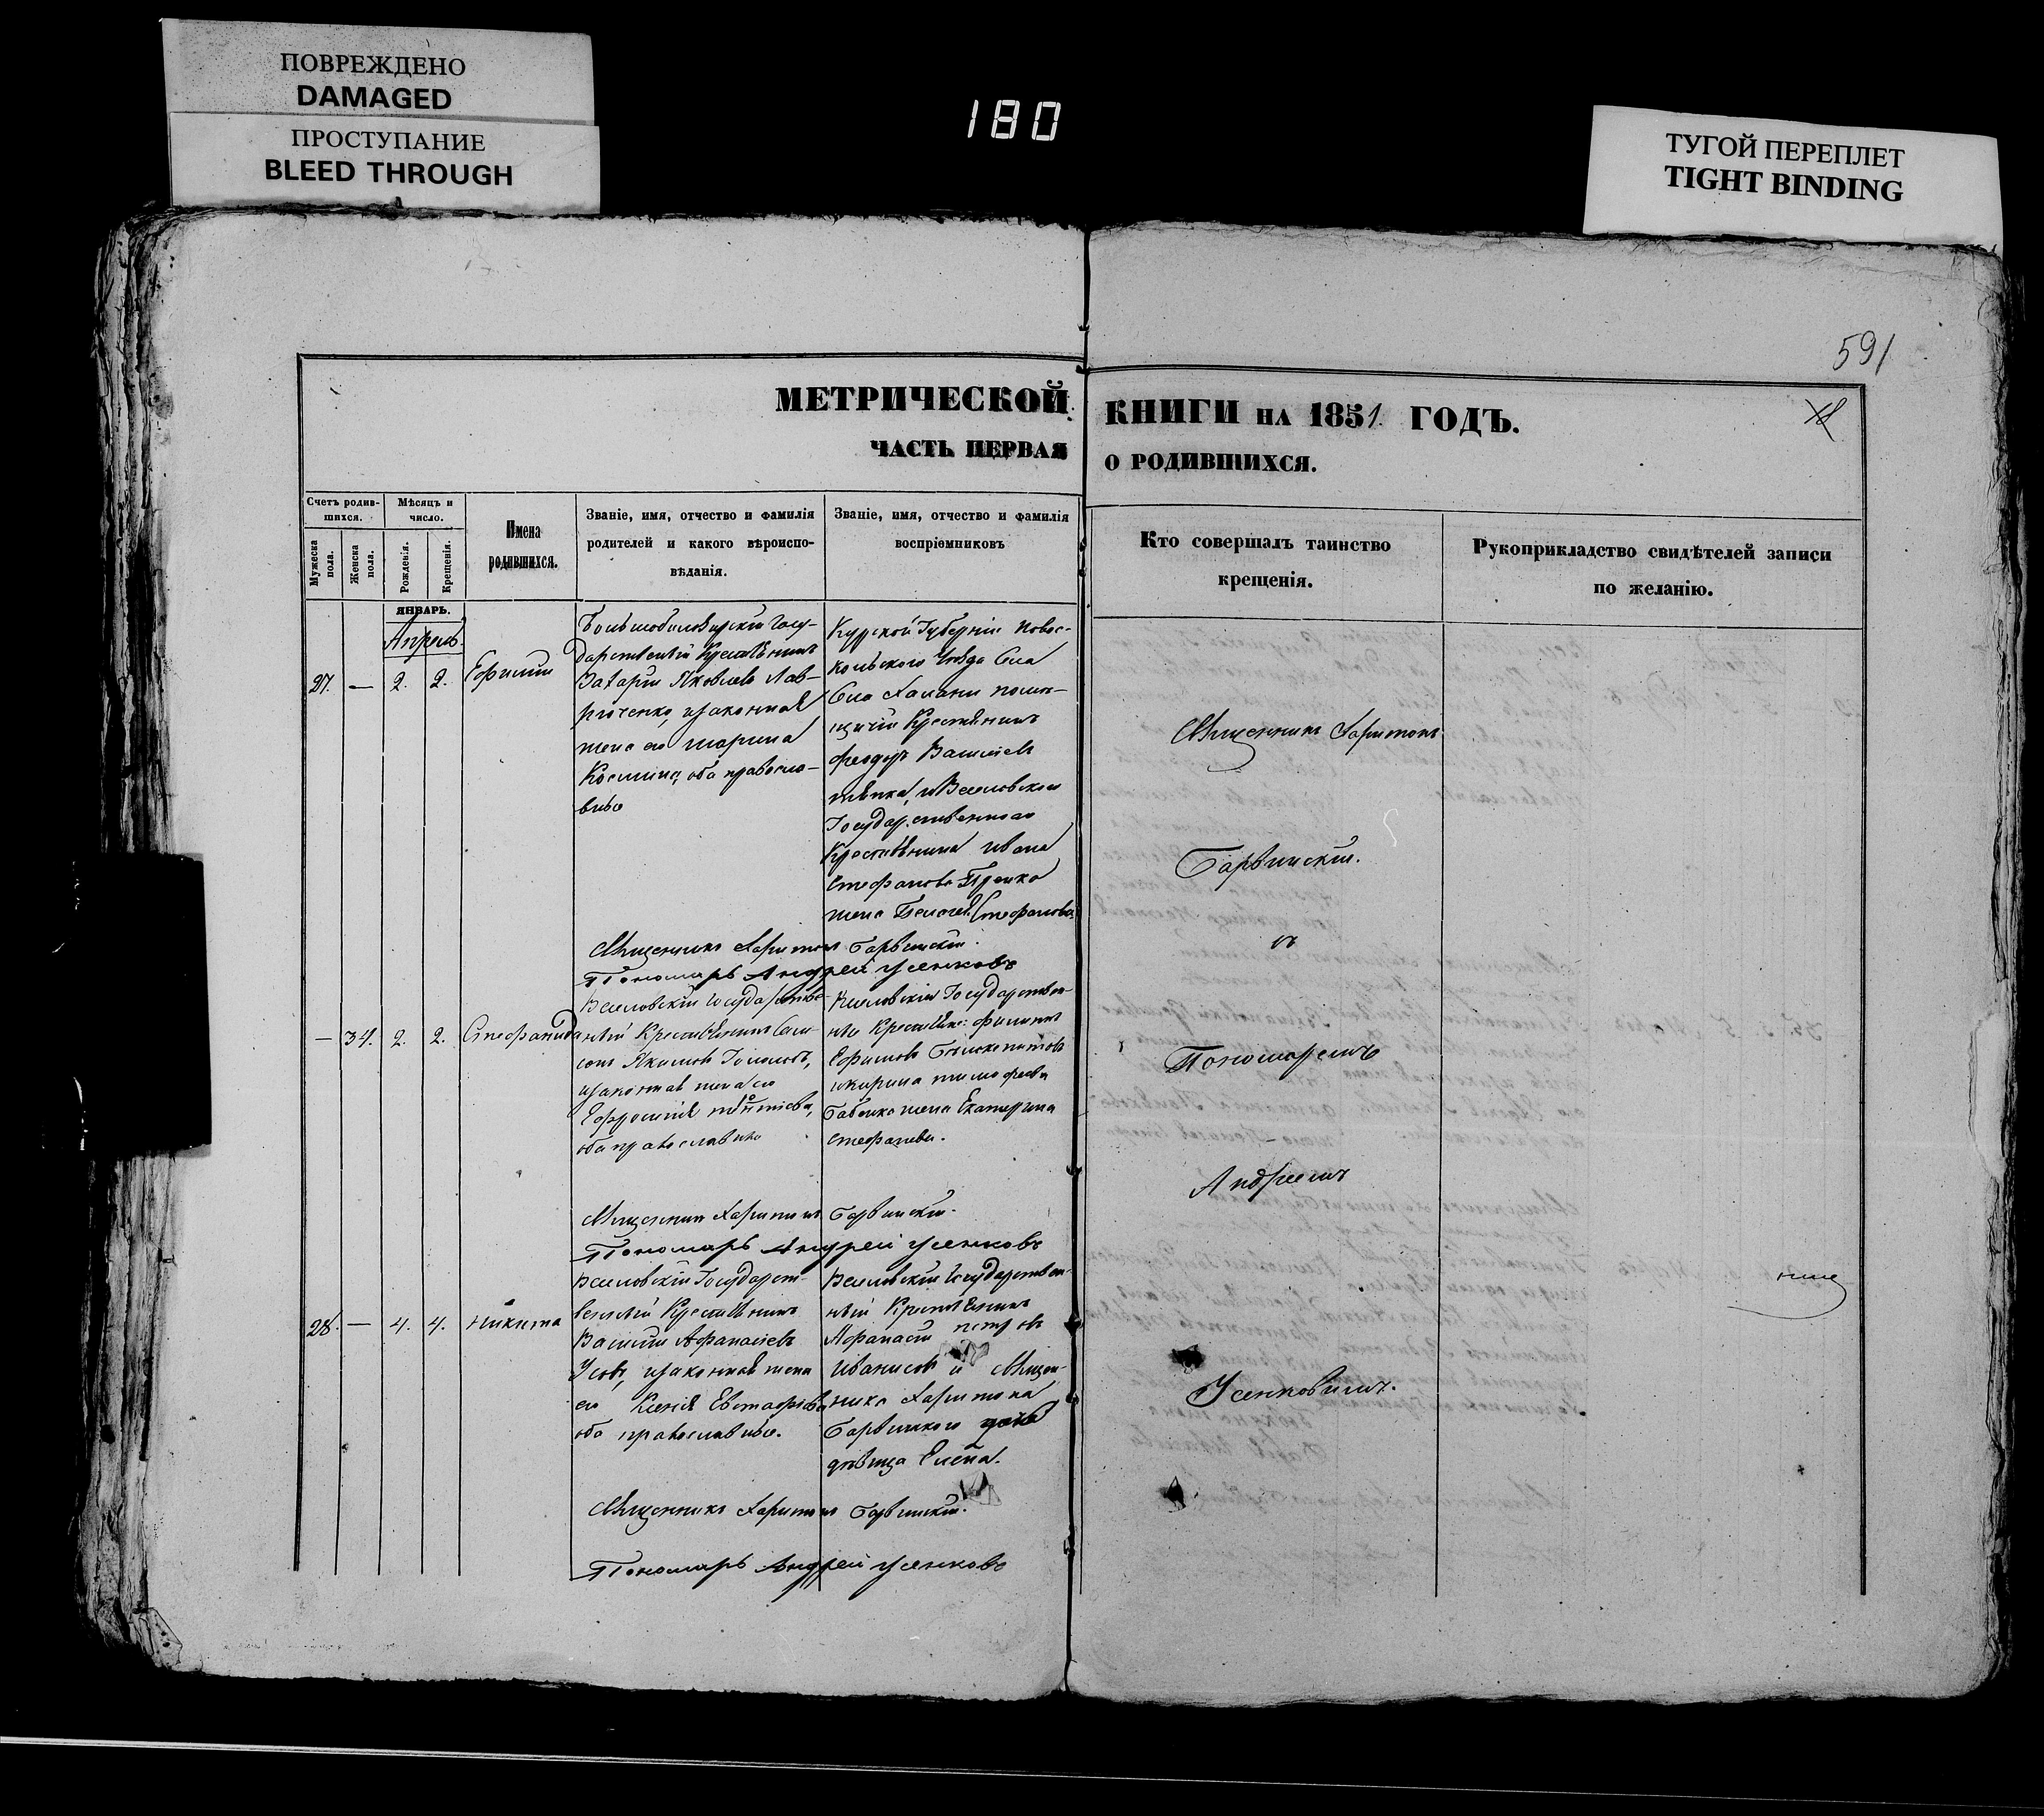 ПОВРЕЖДЕНО
DAMAGED
ПРОСТУПАНИЕ
BLEED THROUGH
180
ТУГОЙ ПЕРЕПЛЕТ
TIGHT BINDING
591
МЕТРИЧЕСКОЙ КНИГИ НА 1851 ГОДЪ.
ЧАСТЬ ПЕРВАЯ О РОДИВШИХСЯ.
Счетъ родив-
шихся.
Мужеска
пола.
Женска
пола.
Мѣсяцъ и
число.
Рожденія.
Крещенія.
Имена
родившихся.
Званіе, имя, отчество и фамилія
родителей и какого вѣроиспо-
вѣданія.
Званіе, имя, отчество и фамилія
воспріемниковъ
Кто совершалъ таинство
крещенія.
Рукоприкладство свидѣтелей записи
по желанію.
ЯНВАРЬ.
Апрель
27. — 2. 2. Ефимій
Государственный Крестьянинъ
Захарій Яковлевъ
законная
жена его Марина
Космина, оба правосла-
вные
Курской Губерніи Новос-
кольского Уѣзда Села
Халани помѣ-
щичій Крестьянинъ
Феодоръ Васильевъ
и Веселовскаго
Государственнаго
Крестьянина Ивана
Стефанова
жена Стефанова
Священникъ Харитонъ Барвинскій.
Пономарь Андрей Усенковъ
— 34. 2. 2. Стефанида
Веселовскій Государстве-
нный Крестьянинъ
законная жена его
Ефросинія
оба православные
Веселовскіе Государствен-
ные Крестьяне: Филиппъ
Ефимовъ
Кирила Тимофеева
Бабенка жена Екатерина
Стефанова.
Священникъ Харитонъ Барвинскій.
Пономарь Андрей Усенковъ
28. — 4. 4. Никита
Веселовскій Государст-
венный Крестьянинъ
Василій Афанасіевъ
Усовъ, законная жена
его Ксенія Евстафіева
оба православные.
Веселовскій Государствен-
ный Крестьянинъ
Афанасій Петровъ
Иванисовъ и Священ-
ника Харитона
Барвинскаго дочь
дѣвица Елена.
Священникъ Харитонъ Барвинскій.
Пономарь Андрей Усенковъ
Священникъ Харитонъ
Барвинскій.
съ
Пономаремъ
Андреемъ
Усенковымъ.